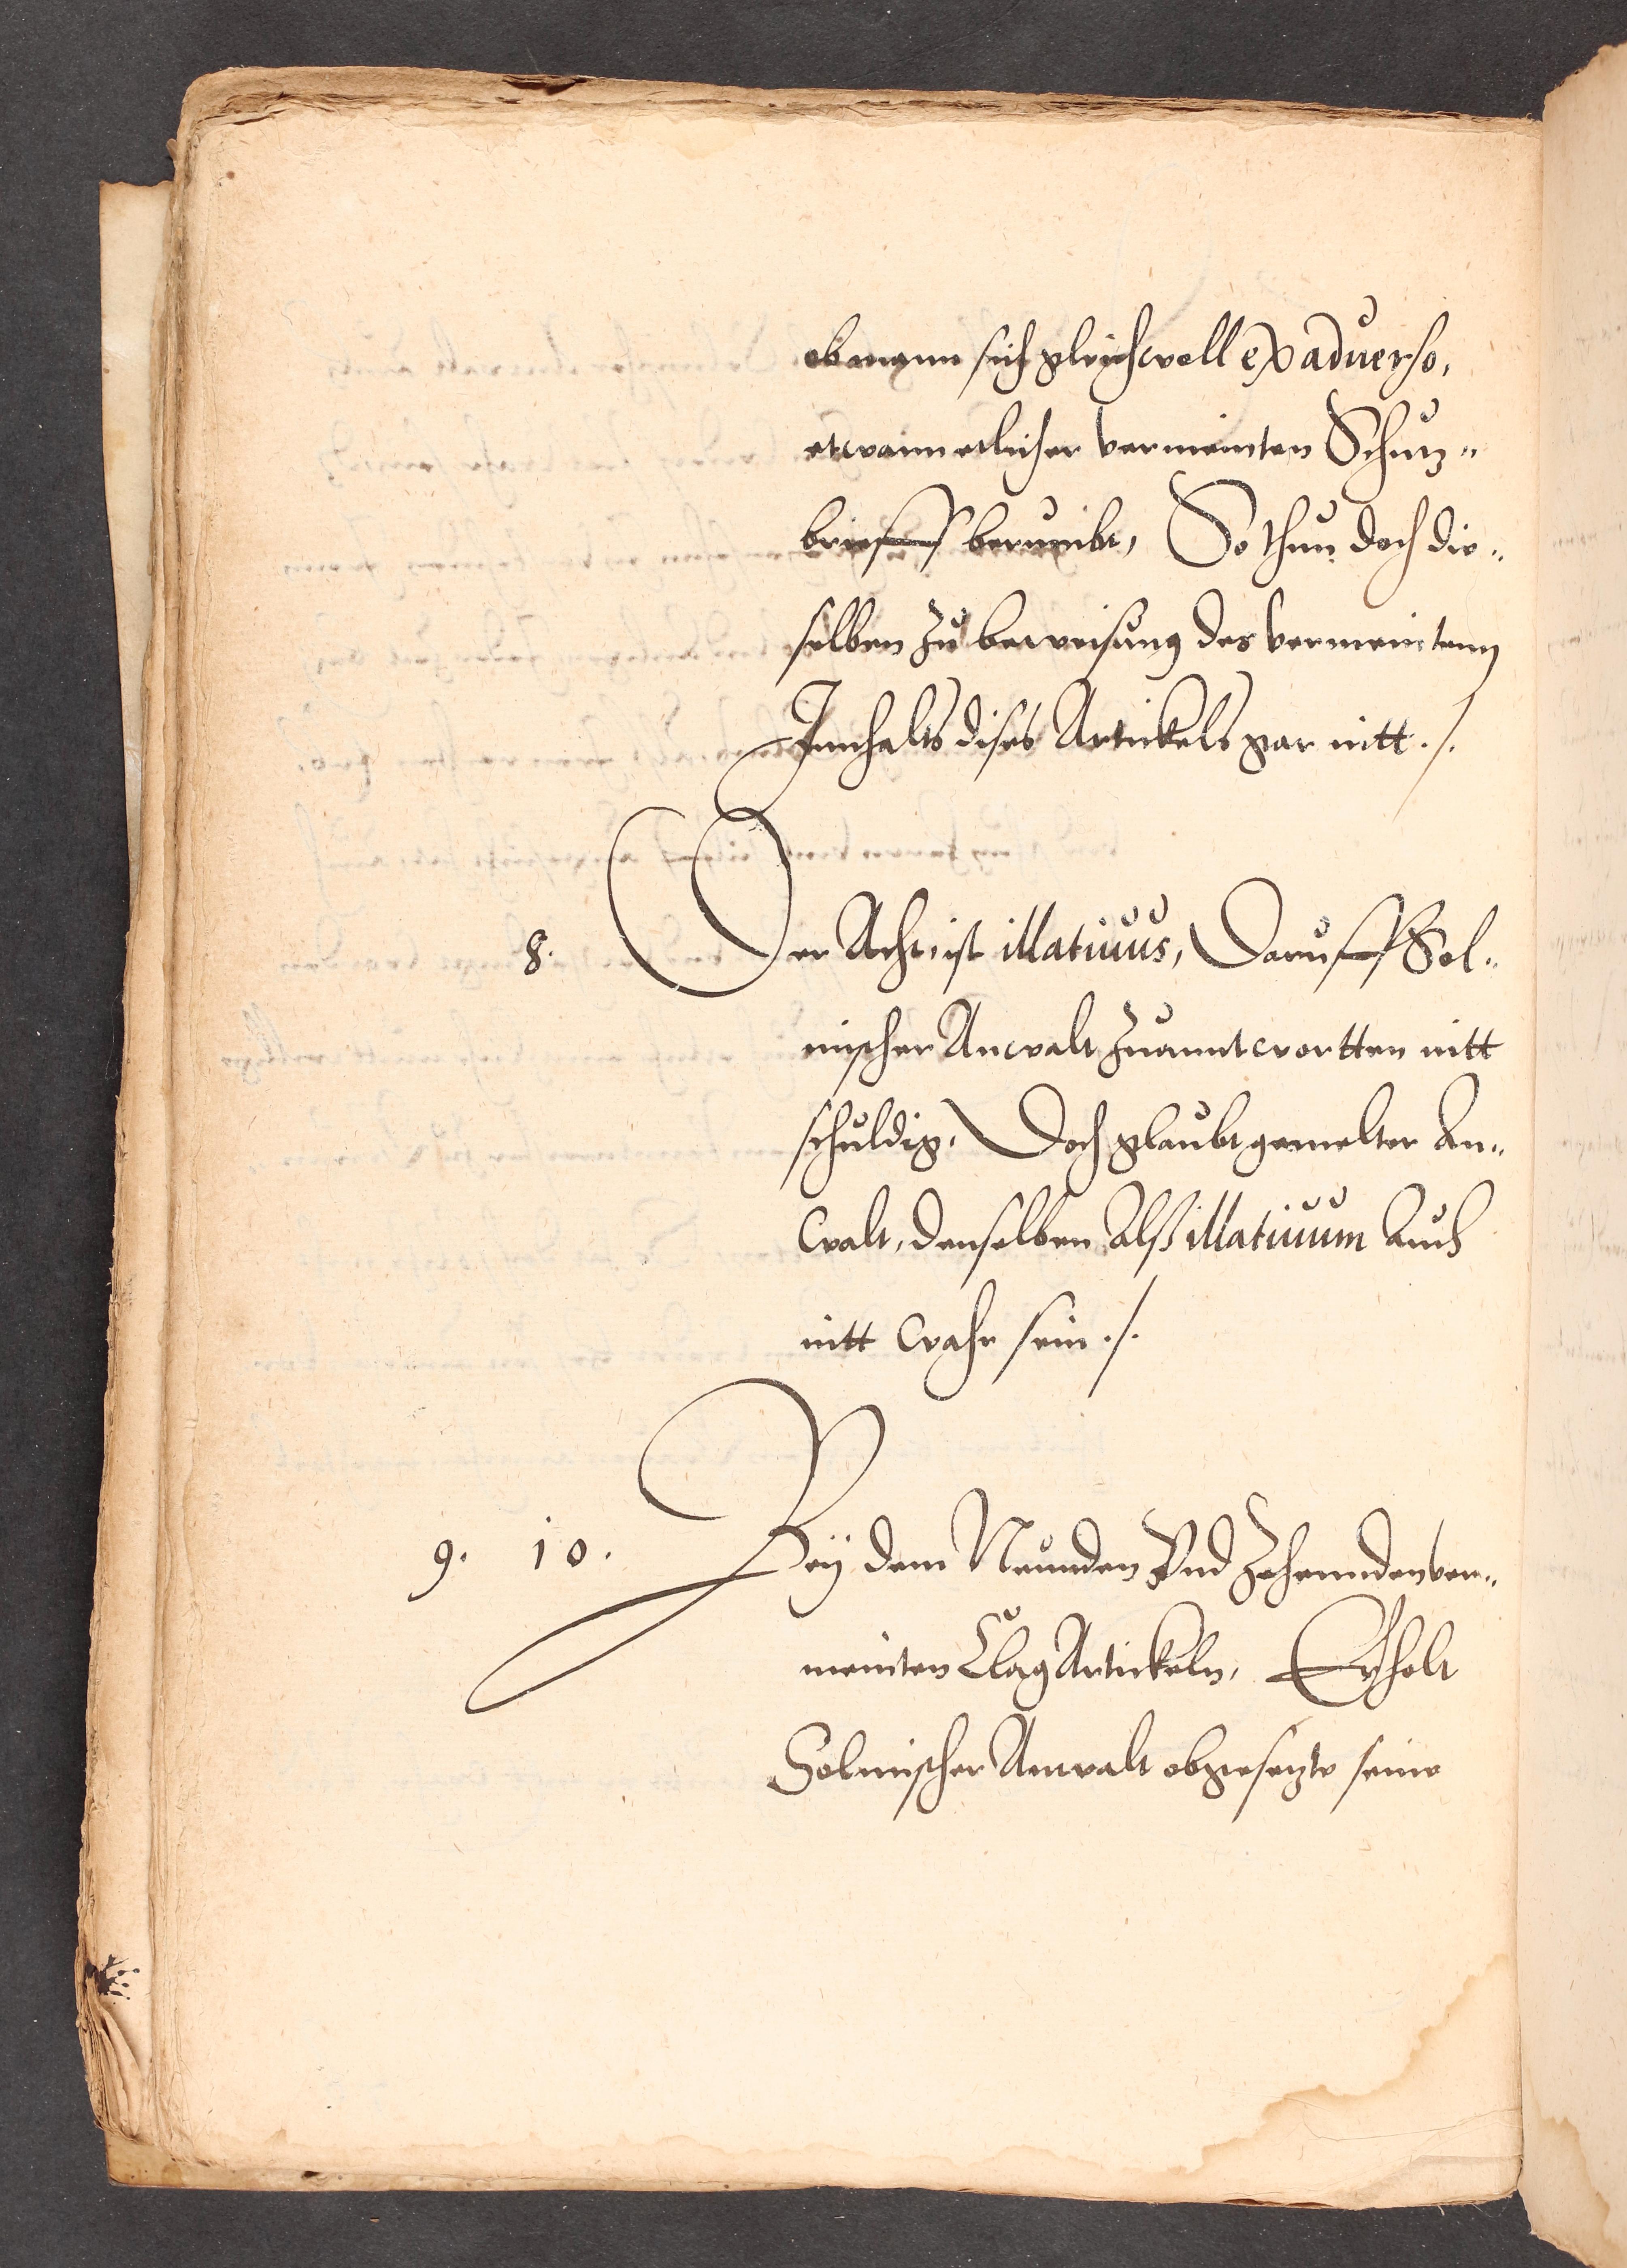 ob mann sich gleichwoll ex aduerso,
etwann etlicher vermeinten Schutz„
brieff berümbt, So thun doch die„
selben zu beweisung des vermeintenn
Innhalts dises Artickels gar nitt ./.
8. Der Acht ist illatiuus, Daruff Sol„
mischer Anwalt zuanntwortten nitt
schuldig, Doch glaubt gemelter An„
walt, denselben Alß illatiuum Auch
nitt wahr sein ./.
9. 10. Beÿ dem Neunden Vnd Zehenndenn ver„
meinten Clag Artickeln, Erholt
Solmischer Anwalt obgesetzte seine